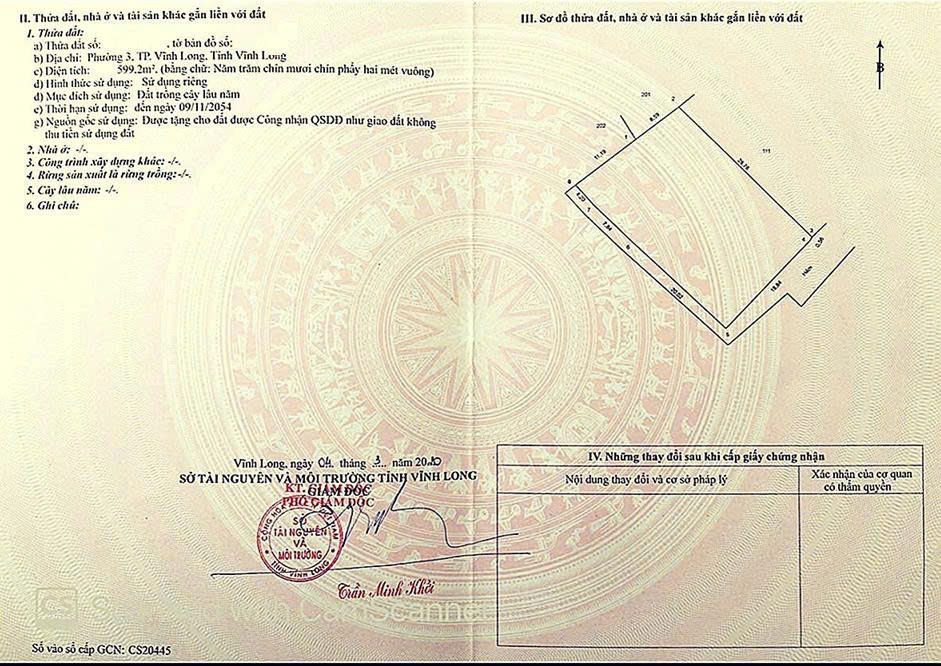 II. Thửa đất, nhà ở và tài sản khác gắn liền với đất
1. Thửa đất:
a) Thửa đất số: , tờ bản đồ số:
b) Địa chỉ: Phường 3, TP. Vĩnh Long, Tỉnh Vĩnh Long
c) Diện tích: 599.2m². (bằng chữ: Năm trăm chín mươi chín phẩy hai mét vuông)
d) Hình thức sử dụng: Sử dụng riêng
đ) Mục đích sử dụng: Đất trồng cây lâu năm
e) Thời hạn sử dụng: đến ngày 09/11/2054
g) Nguồn gốc sử dụng: Được tặng cho đất được Công nhận QSDĐ như giao đất không
thu tiền sử dụng đất
2. Nhà ở: -/-.
3. Công trình xây dựng khác: -/-.
4. Rừng sản xuất là rừng trồng:-/-.
5. Cây lâu năm: -/-.
6. Ghi chú:
III. Sơ đồ thửa đất, nhà ở và tài sản khác gắn liền với đất
B
201
2
202
8.59
1
11.19
111
28.78
6
4.23
1
7.84
6
20.02
5
3
4
0.56
Hẻm
18.84
Vĩnh Long, ngày 04 tháng 3 năm 2020
SỞ TÀI NGUYÊN VÀ MÔI TRƯỜNG TỈNH VĨNH LONG
KT. GIÁM ĐỐC
GIÁM ĐỐC
PHÓ GIÁM ĐỐC
SỞ
TÀI NGUYÊN
VÀ
MÔI TRƯỜNG
TỈNH VĨNH LONG
Trần Minh Khởi
IV. Những thay đổi sau khi cấp giấy chứng nhận
Nội dung thay đổi và cơ sở pháp lý
Xác nhận của cơ quan
có thẩm quyền
CS
with CamScanner
Số vào sổ cấp GCN: CS20445